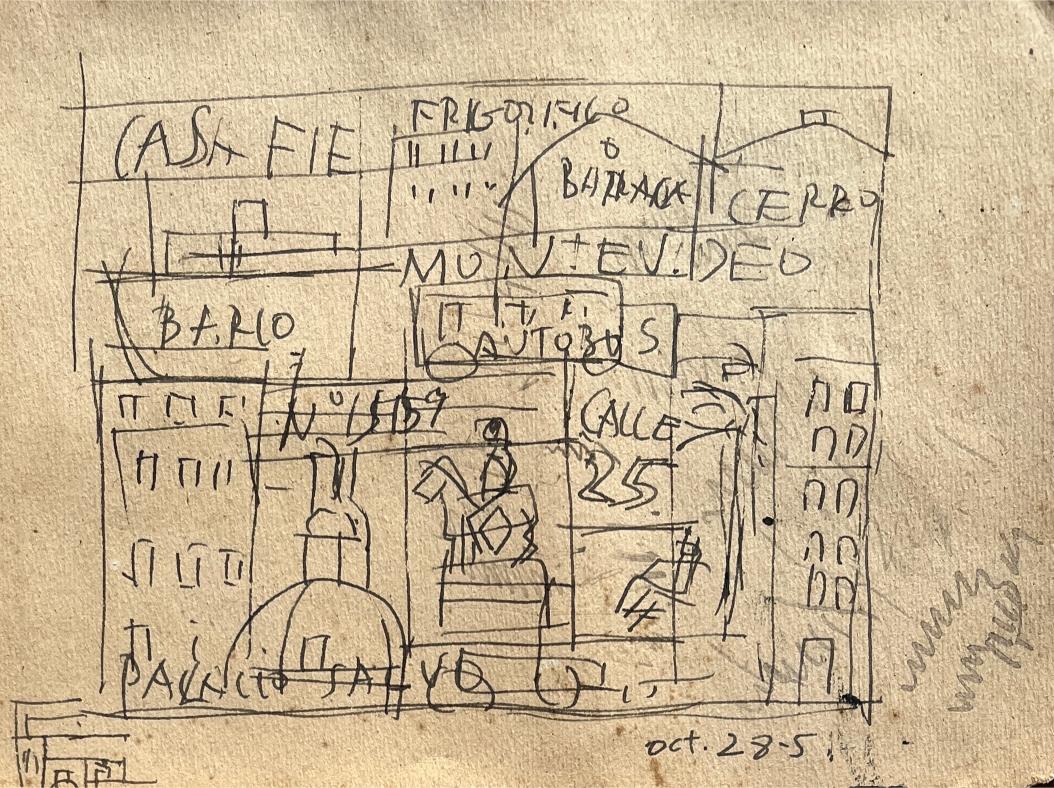 CASA FIE
FRIGORIFICO
BARRACA
CERRO
MONTEVIDEO
BARIO
AUTOBUS
Nº 1515
CALLE
25
PALACIO SALVO
oct. 28-5